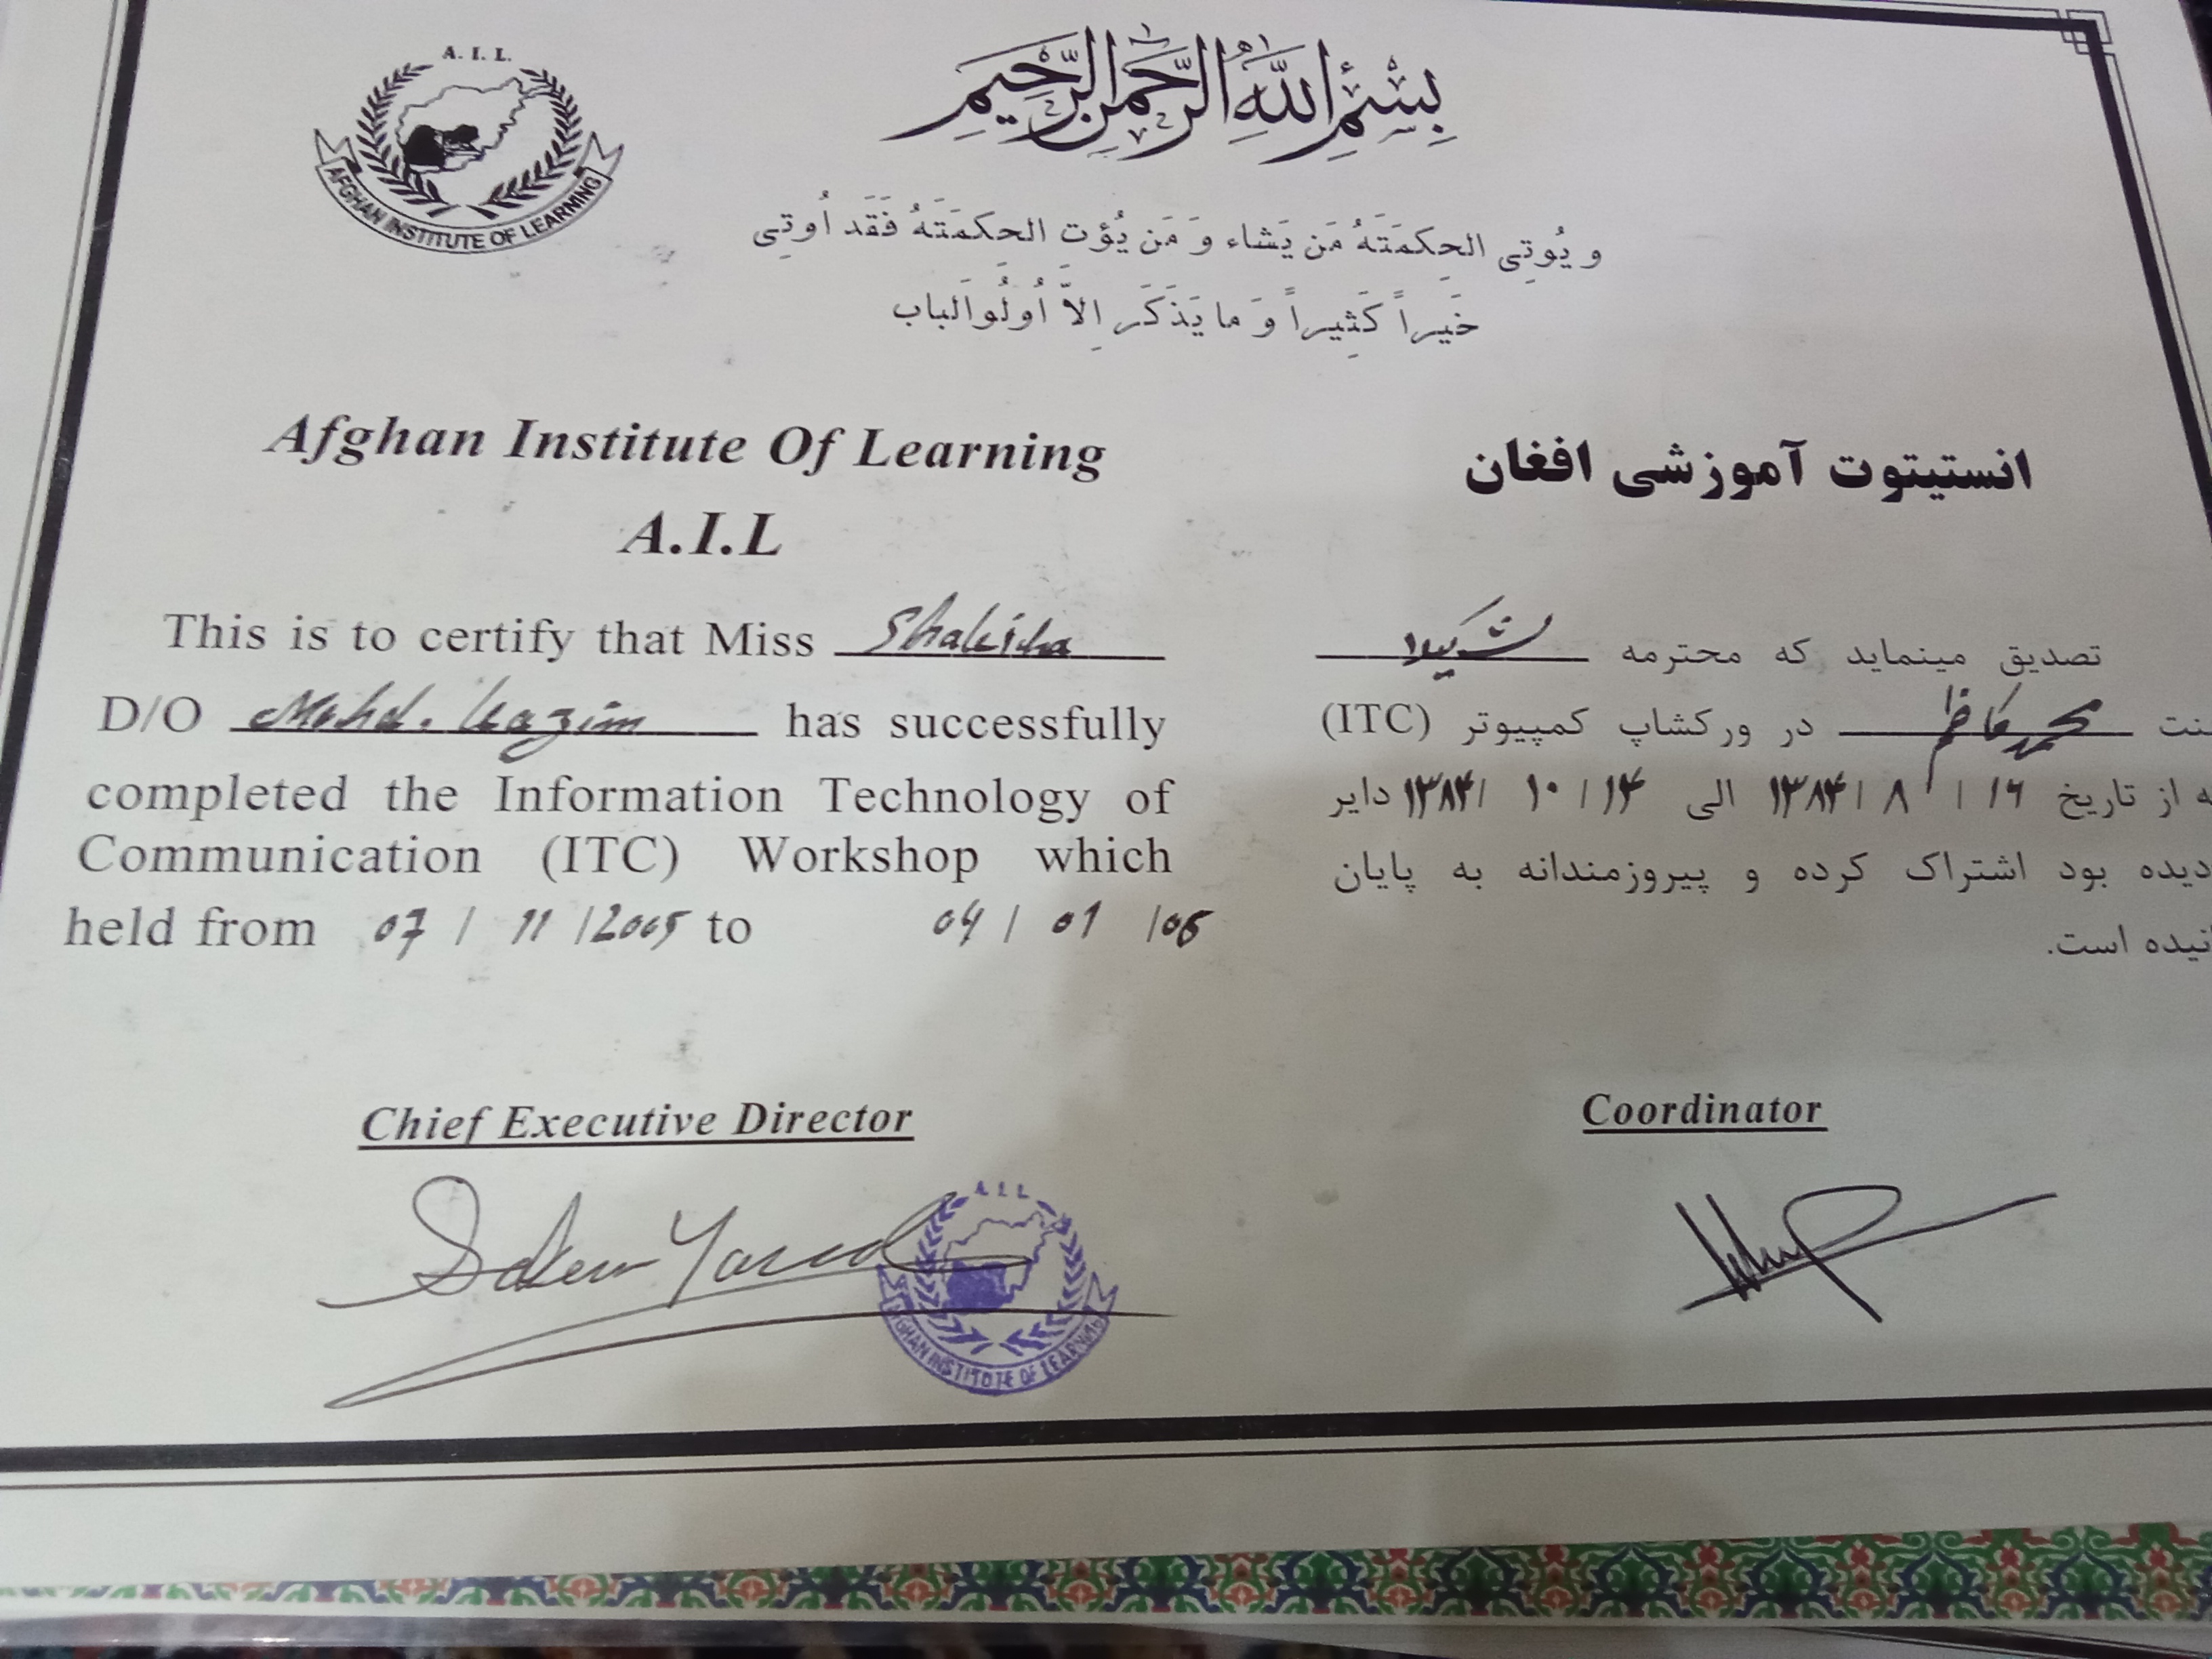 A. I. L.
AFGHAN INSTITUTE OF LEARNING
بِسْمِ اللَّهِ الرَّحْمَنِ الرَّحِيمِ
و يُوتِی الحِکمَتَهُ مَن یَشاء وَ مَن یُؤت الحکمَتَهُ فَقَد اُوتِی
خَیراً کَثِیراً وَ ما یَذَکَر اِلاّ اُولُوالباب
Afghan Institute Of Learning
A.I.L
This is to certify that Miss
D/O Mohd. Kazim has successfully
completed the Information Technology of
Communication (ITC) Workshop which
held from 07 / 11 /2005 to 04 / 01 /06
انستیتوت آموزشی افغان
تصدیق مینماید که محترمه شکیلا
نت محمد کاظم در ورکشاپ کمپیوتر (ITC)
ه از تاریخ ۱۶ / ۸ /۱۳۸۴ الی ۱۴ / ۱۰ /۱۳۸۴ دایر
دیده بود اشتراک کرده و پیروزمندانه به پایان
انیده است.
Chief Executive Director
Coordinator
A I L
AFGHAN INSTITOTE OF LEARNING